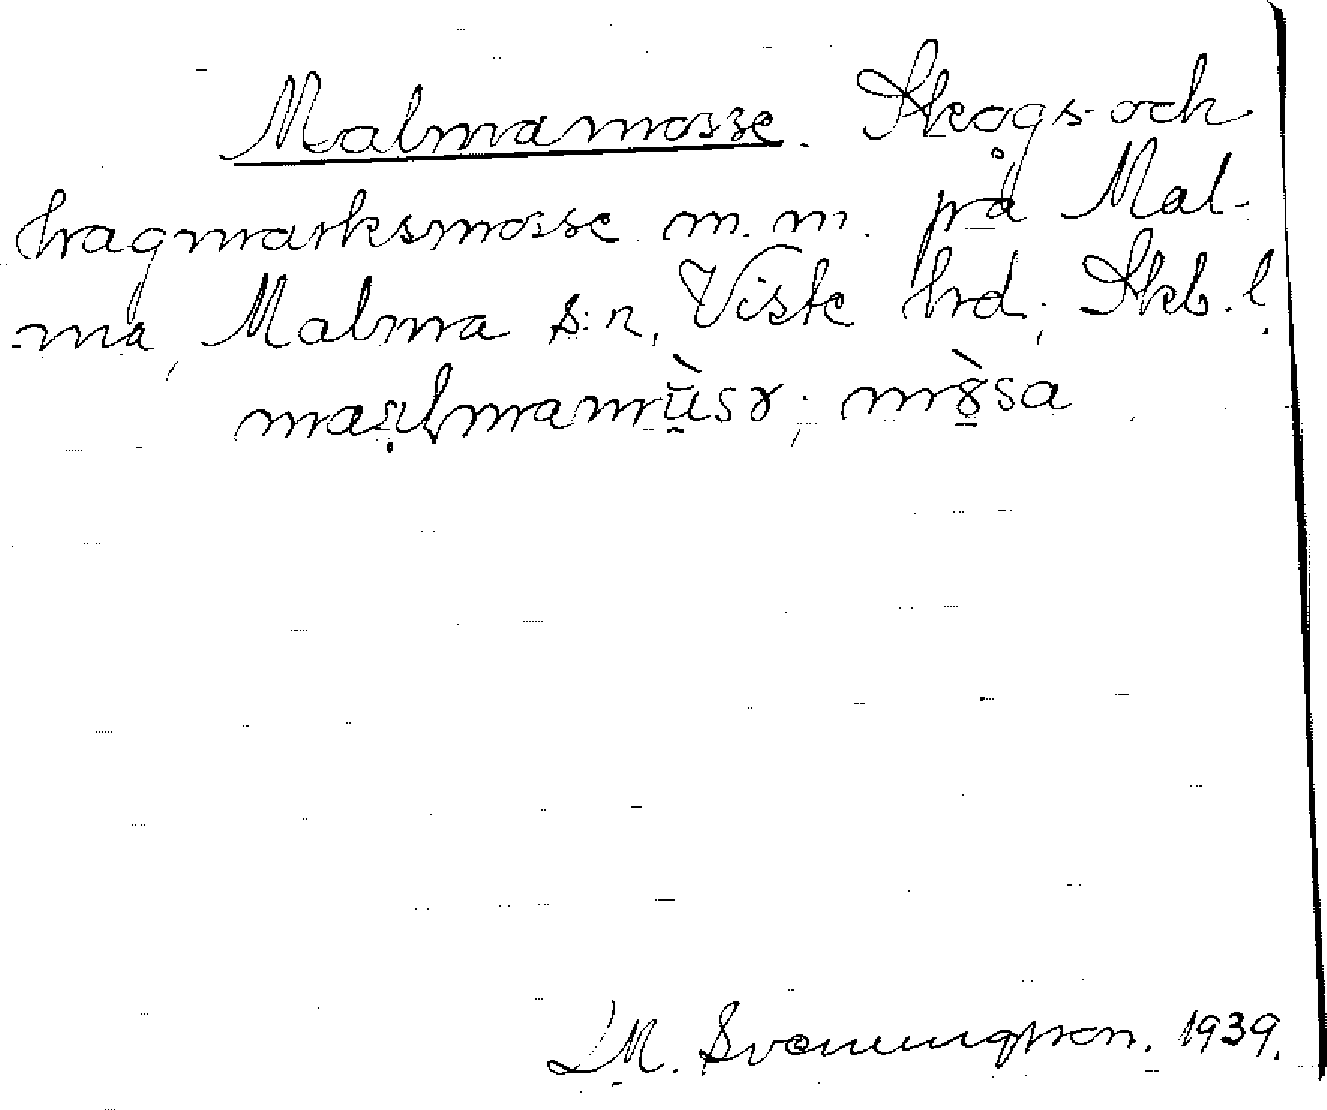 Malmamosse. Skogs- och
hagmarksmosse m.m. på Mal-
ma, Malma s:n, Viste hrd, Skb. l.
M. Svenungsson. 1939.